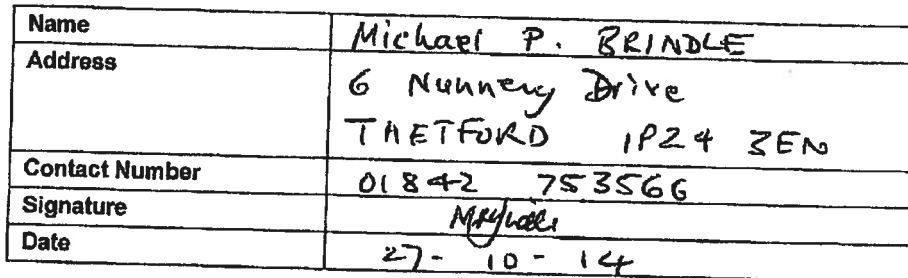 Name Michael P. BRINDLE
Address 6 Nunnery Drive
THETFORD IP24 3EN
Contact Number 01842 753566
Signature
Date 27-10-14